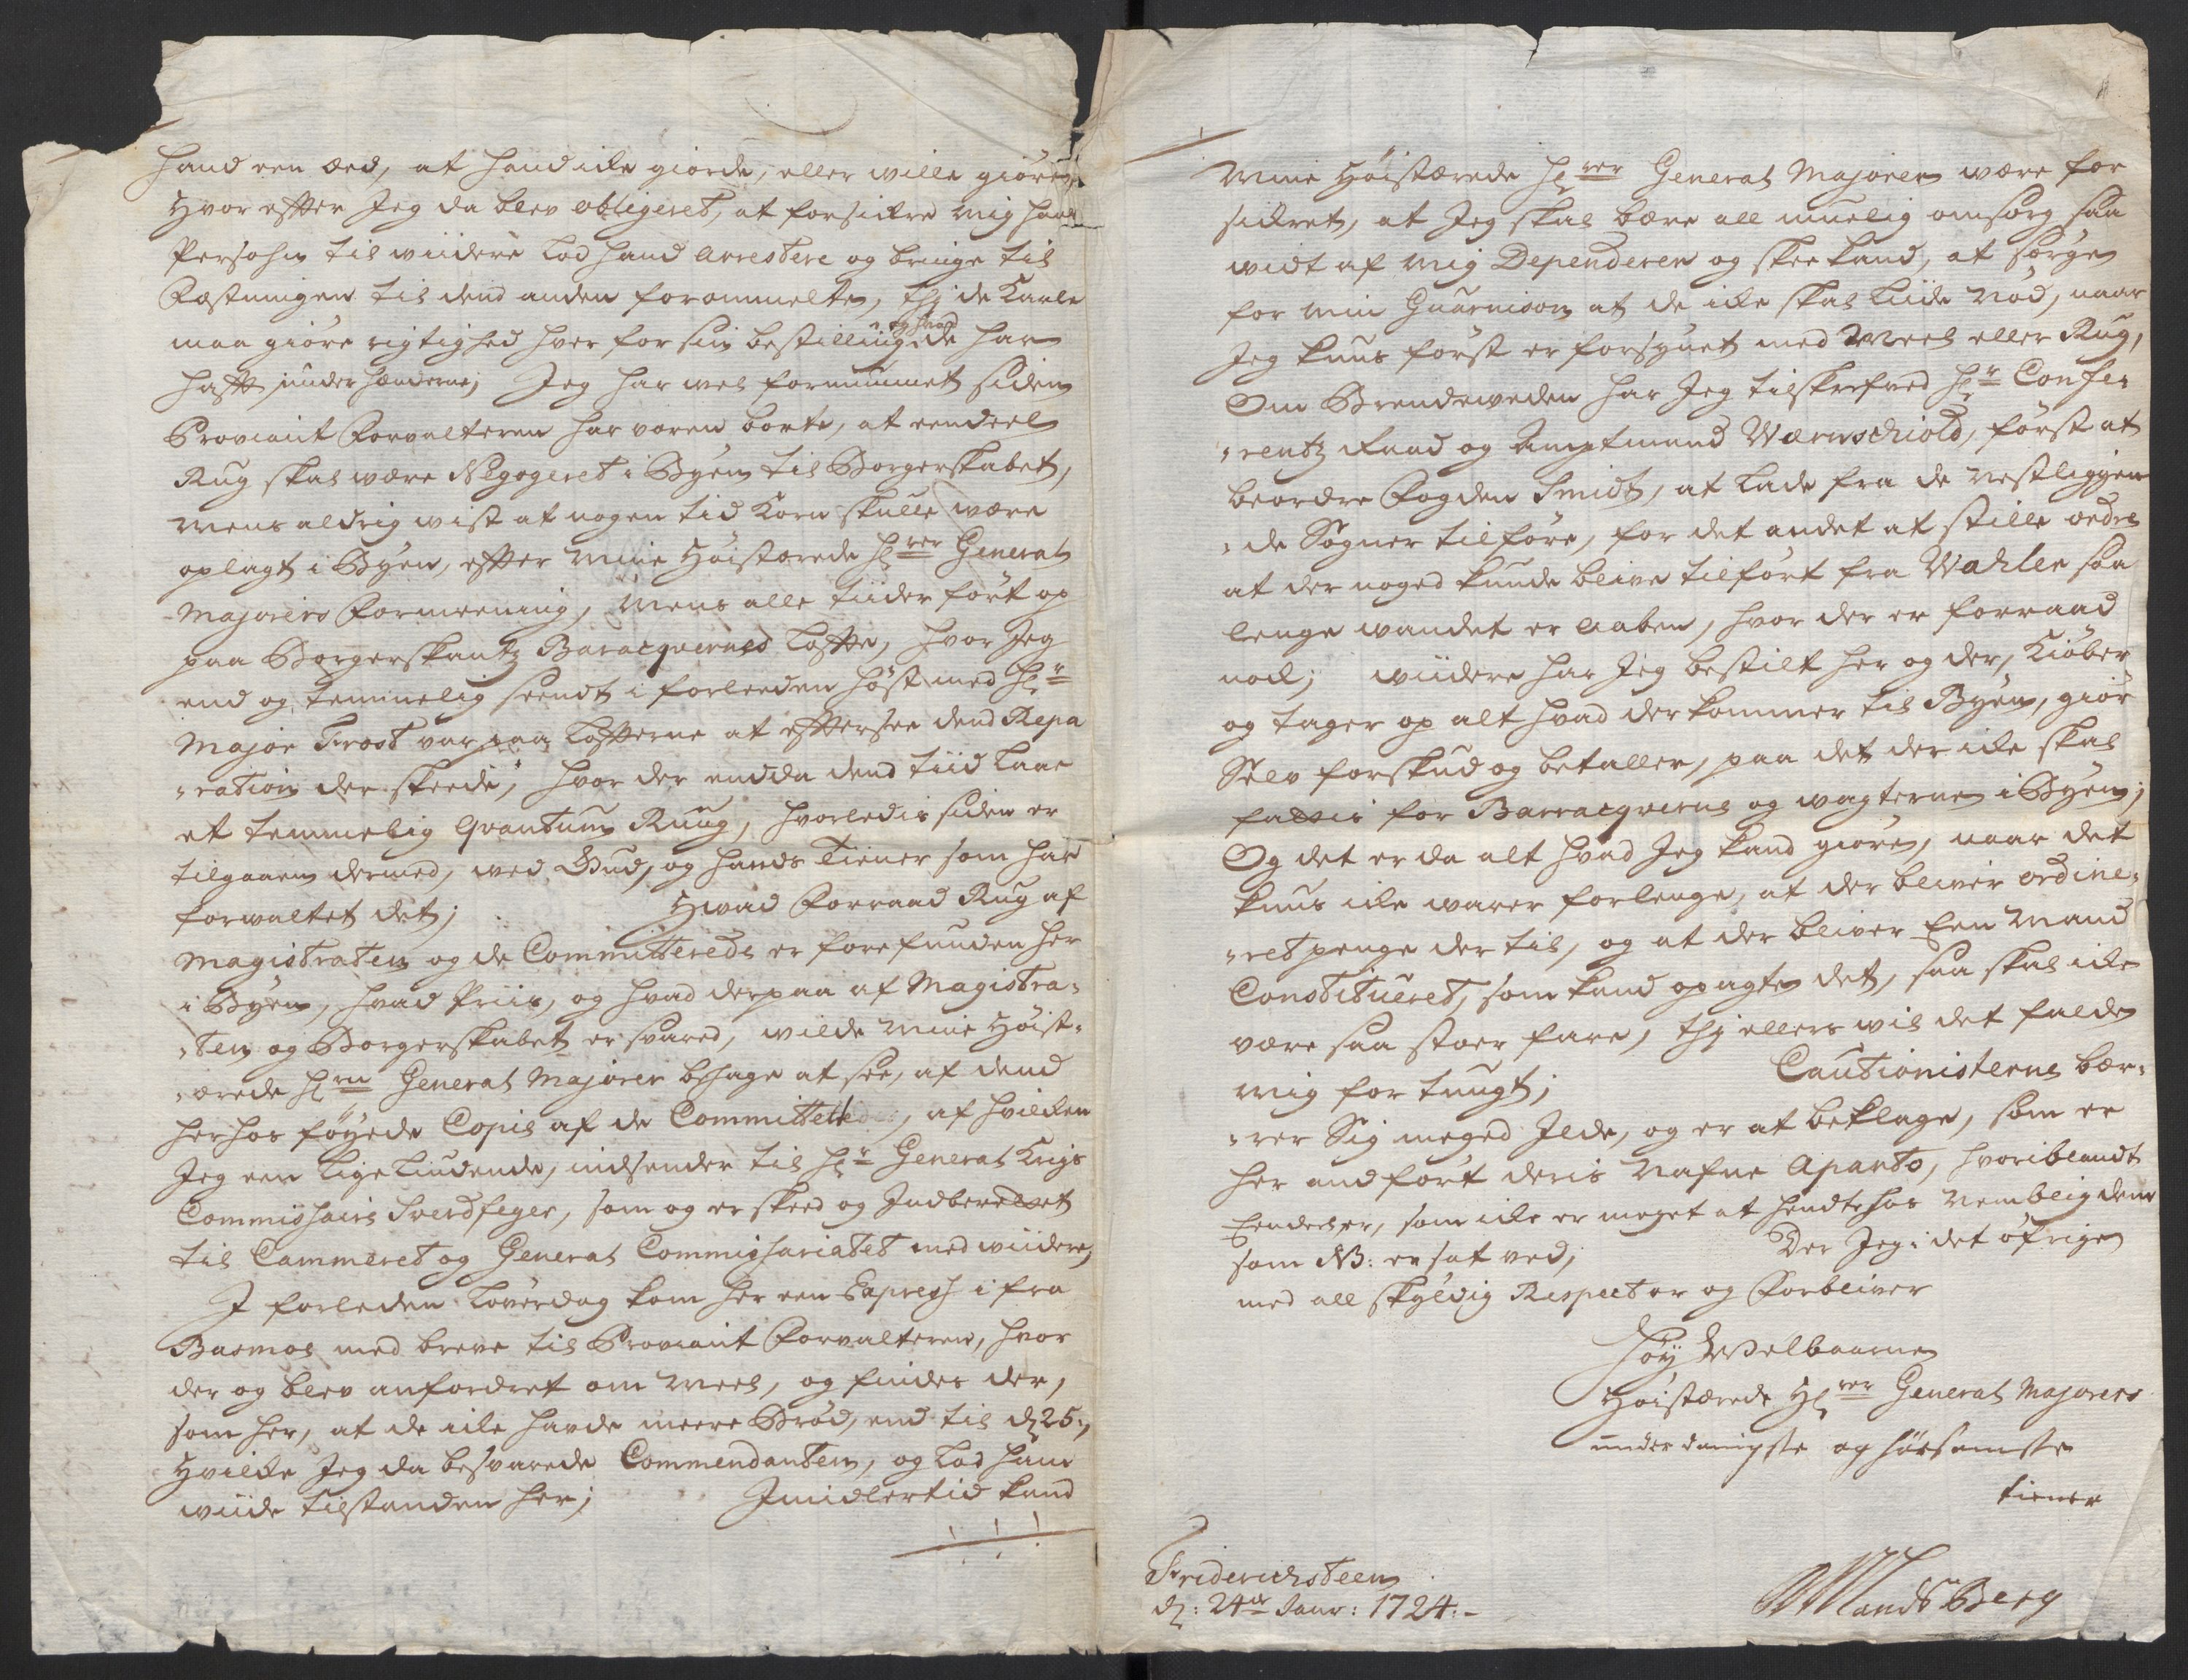 hand een æed, at hand icke giorde, eller wille giöre,
Hvor efter Jeg da blev obligeret, at forsickre mig hans
Persohn til wiidere lod hand arrestere og bringe til
Fæstningen til dend anden forommelte, thj de Karle
maa giöre rigtighed hver for sin bestilling og hvad de har
hafft under hænderne; Jeg har wel fornummet siden
Proviant Forvalteren har voren borte, at eendeel
Rug skal være Negogeret i Byen til Borgerskabet,
mens aldrig wist at nogen tid Korn skulle være
oplagt i Byen, effter Mine Höistærede Hrer General
Majorers Formeening, Mens alle tiider fört op
paa Borgerskantz Baracquernes Loffte, hvor Jeg
end og temmelig seendt i forleeden höst med Hr
Major Frost var paa Loffterne at effter see dend Repa
ration der skeede, hvor der endda dend tiid laae
et temmelig qvantum Ruug, hvorledis siden er
tilgaaen dermed, wed Gud, og hands Tiener som har
forwaltet det; Hvad Forraad Rug af
Magistraten og de Committerede er forefunden her
i Byen, hvad Priis, og hvad derpaa af Magistra-
ten og Borgerskabet er svared, wilde Mine Höist-
ærede Hrn General Majorer behage at see, af dend
herhos föyede Copie af de Committe, af hvilcken
Jeg een lige liudende, indsender til Hr General Krigs
Commissairs Sverdfeger, som og er skeed og Indberettet
til Cammeret og General Commissariatet med wiidere;
I forleden Löverdag kom her een Express i fra
Basmos med breve til Proviant Forvalteren, hvor
der og blev anfordret om Meel, og findes der,
som her, at de icke havde meere Bröd, end til d 25:,
Hvilcke Jeg da besvarede Commendanten, og lod ham
wiide tilstanden her; Imidlertid kand
Mine Höistærede Hrer General Majorer være for
sickret, at Jeg skal bære all muelig omsorg, saa
widt af mig Dependerer og skee kand, at sörge
for min Guarnison at de icke skal liide nöd, naar
Jeg kuns först er forsynet med Meel eller Rug,
Om Brendeweden har Jeg tilskrefved Hr Confe-
rentz Raad og Amptmand Wærnschiold, först at
beordre Fogden Smidt, at lade fra de nestliggen
de Sogner tilföre, for det andet at stille ordre
at der noged kunde blive tilfört fra Wahler saa
lenge wandet er aaben, hvor der er forraad
nock; wiidere har Jeg bestilt her og der, Kiöber
og tager op alt hvad der kommer til Byen, giör
Selv forskud og betaller, paa det der icke skal
fattis for Barracqverne og wagterne i Byen;
Og det er da alt hvad Jeg kand giöre, naar det
kuns icke warer forlenge, at der bliver ordine-
ret penge der til, og at der bliver Een Mand
Constitueret, som kand opagte det, saa skal icke
være saa stoer fare, thj ellers wil det falde
mig for tungt; Cautionisterne bær-
rer Sig meged Ilde, og er at beklage, som er
her andfört deris Nafne aparto, hvoriblandt
Eendeel er, som icke er meget at hendte hos nemblig dem
som NB: er sat ved; Der Jeg i det öfrige
med all skyldig Respect er og Forbliver
Höy Welbaarne
Höistærede Hrer General Majorers
underdanigste og hörsamste
tiener
Friderichsteen
d: 24de Janv: 1724.
Mands Berg